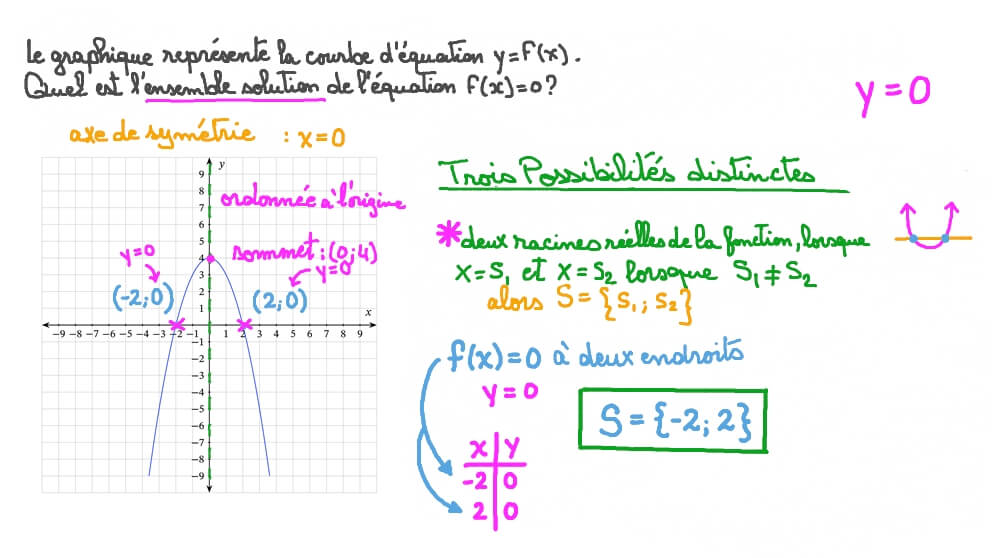 Le graphique représente la courbe d'équation y=f(x).
Quel est l'ensemble solution de l'équation f(x)=0?
y=0
axe de symétrie : x=0
Trois Possibilités distinctes
y
9
8
7
6
5
4
3
2
1
ordonnée à l'origine
sommet : (0;4)
y=0
y=0
(-2;0)
(2;0)
x
-9 -8 -7 -6 -5 -4 -3 -2 -1 1 2 3 4 5 6 7 8 9
-1
-2
-3
-4
-5
-6
-7
-8
-9
*deux racines réelles de la fonction, lorsque
x=S₁ et x=S₂ lorsque S₁≠S₂
alors S={S₁;S₂}
f(x)=0 à deux endroits
y=0
S={-2;2}
x y
-2 0
2 0